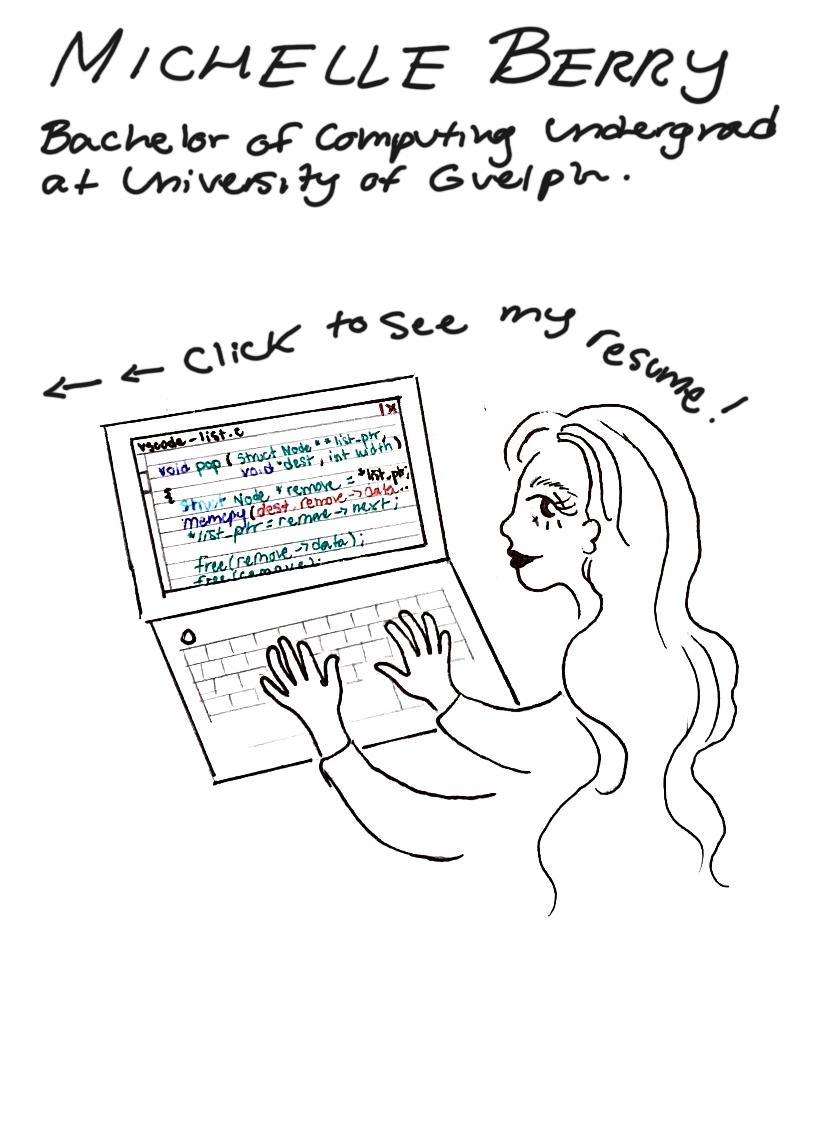 MICHELLE BERRY
Bachelor of Computing undergrad
at University of Guelph.
← ← Click to see my resume!
vscode-list.c
void pop( struct Node **list-ptr,
void *dest, int width)
{
struct Node *remove = *list-ptr;
memcpy(dest, remove->data..
*list-ptr = remove->next;
free(remove->data);
free(remove);